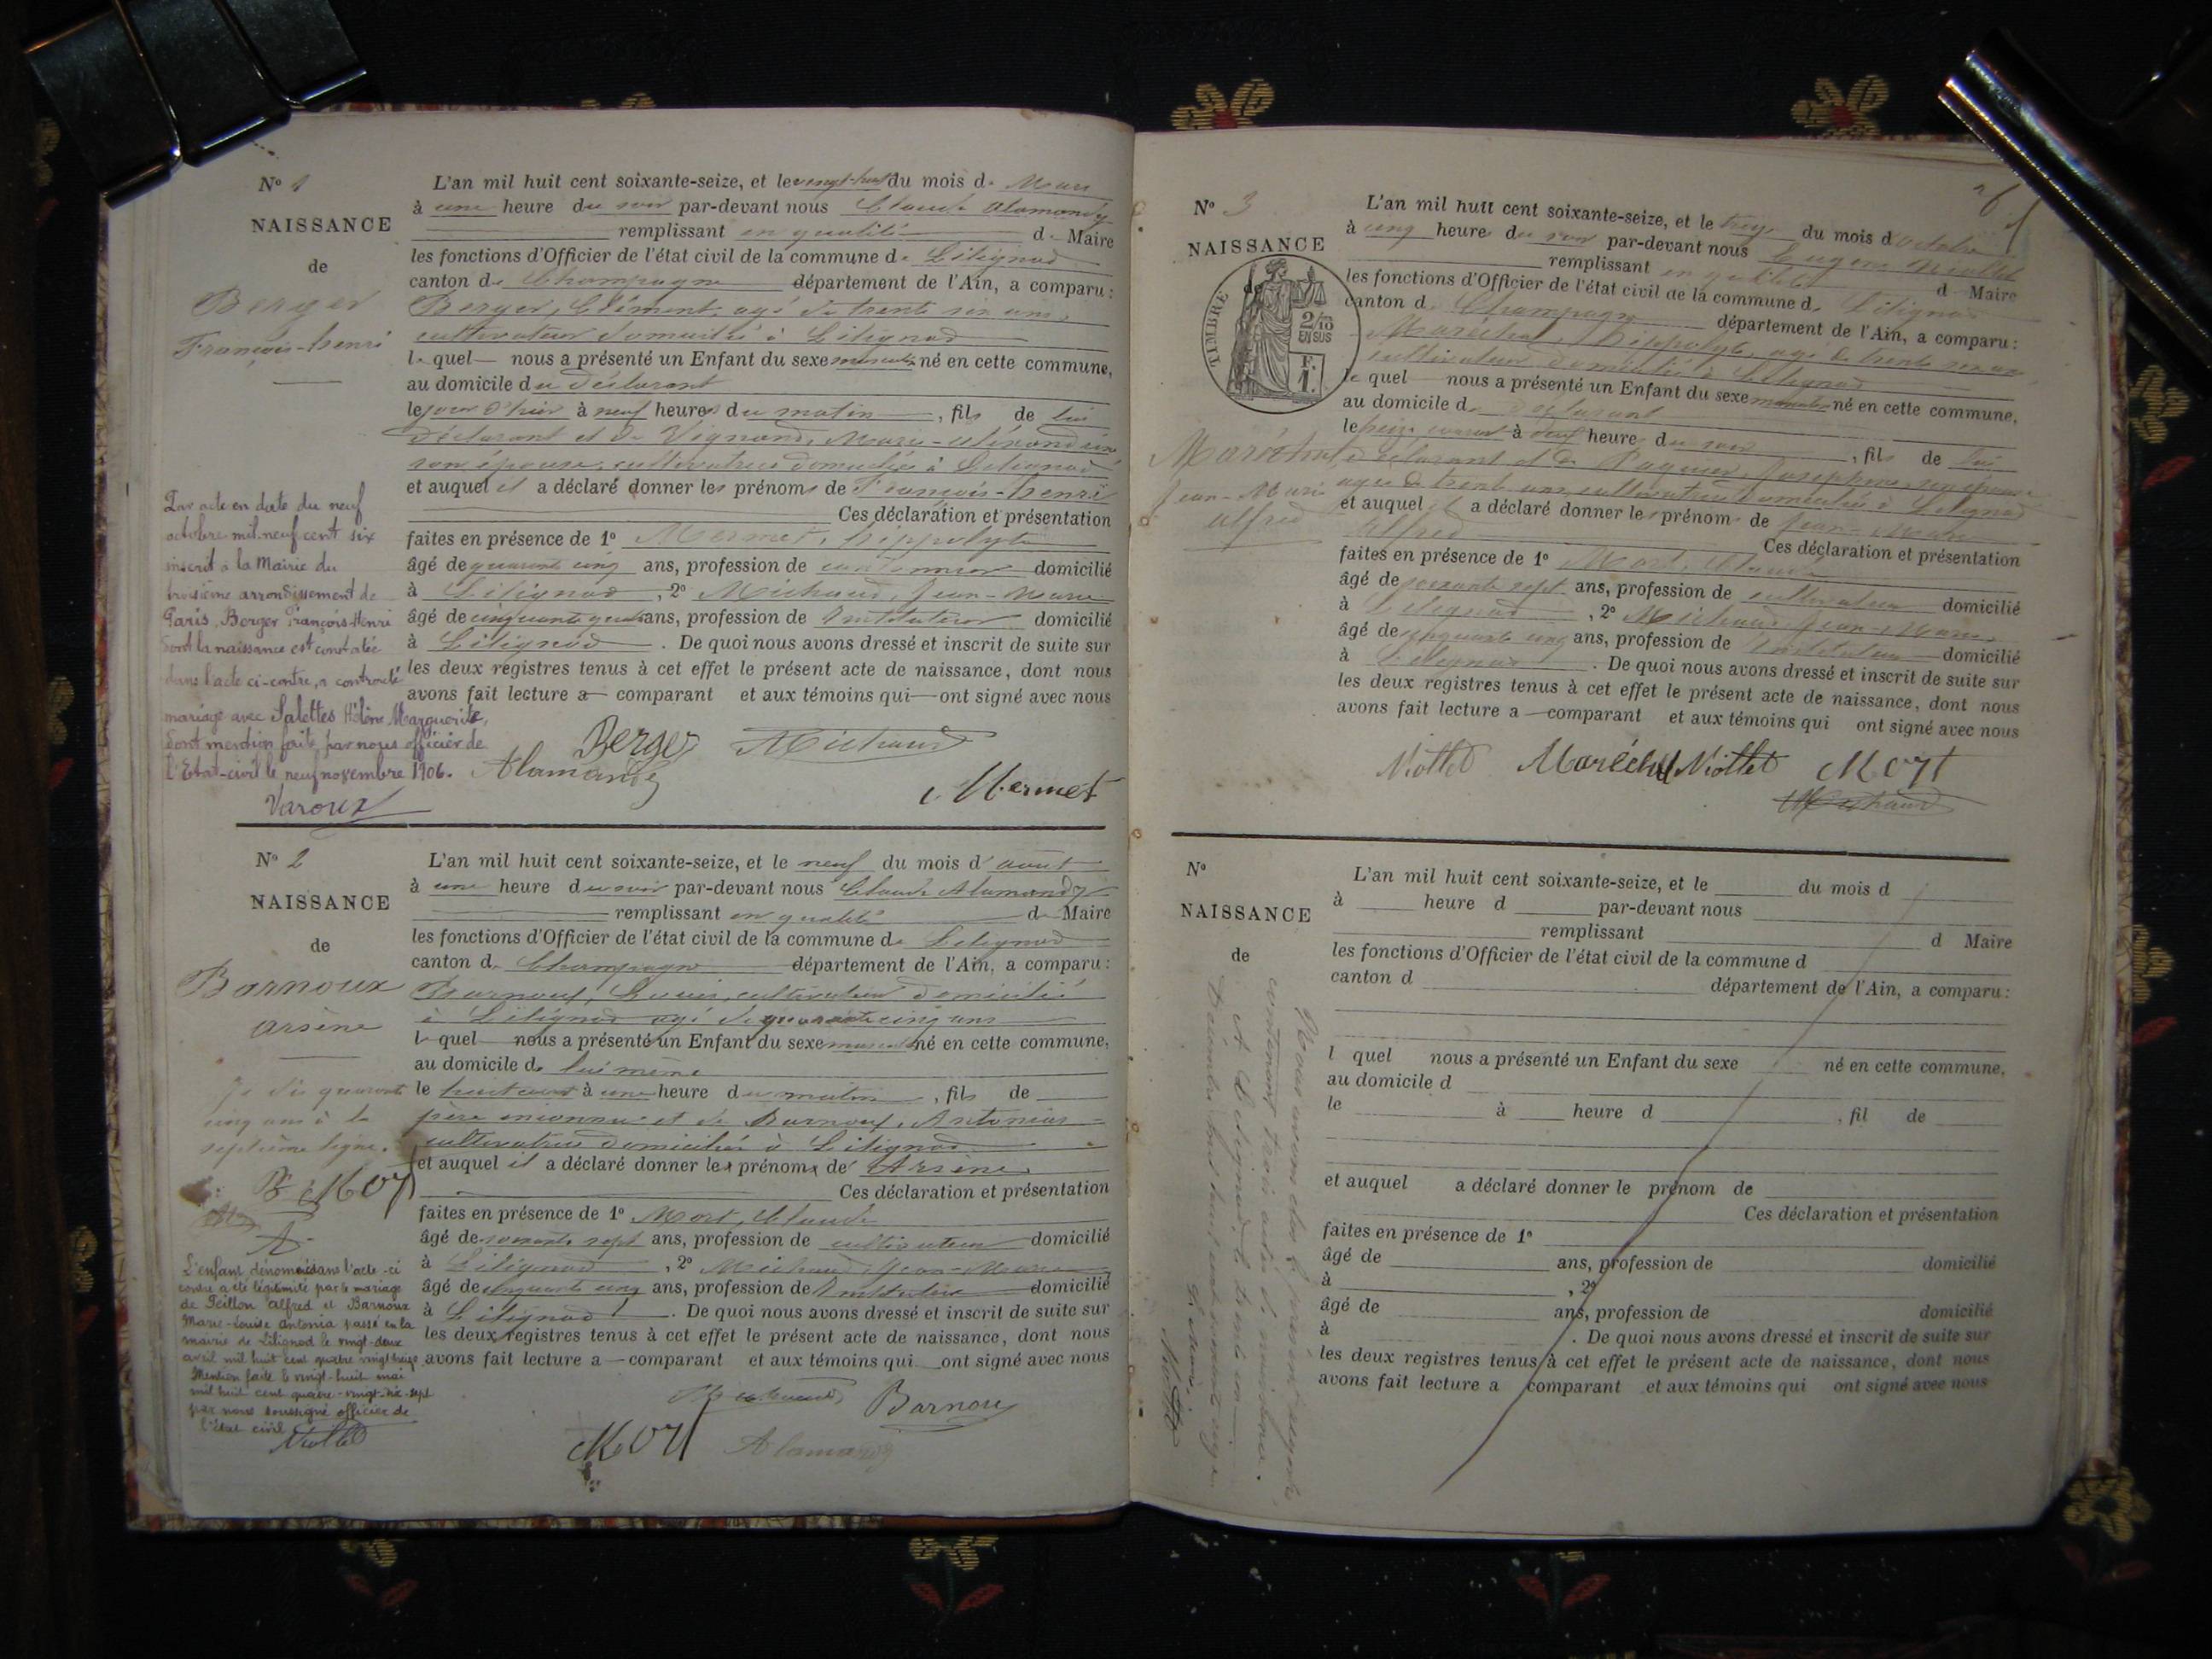 N° 1
NAISSANCE
de
Berger
François-henri
L'an mil huit cent soixante-seize, et le vingt-huit du mois de Mars
à une heure du soir par-devant nous Claude Alamandy
remplissant en qualité de Maire
les fonctions d'Officier de l'état civil de la commune de Lilignod
canton de Champagne département de l'Ain, a comparu:
Berger, Clément, agé de trente six ans,
cultivateur domicilié à Lilignod
lequel nous a présenté un Enfant du sexe masculin né en cette commune,
au domicile du déclarant
le jour d'hier à neuf heures du matin, fils de lui
déclarant et de Vignand, Marie-
son épouse, cultivatrice domiciliée à Lilignod
et auquel il a déclaré donner les prénoms de François-henri
Ces déclaration et présentation
faites en présence de 1° Mermet, hippolyte
âgé de quarante cinq ans, profession de cantonnier domicilié
à Lilignod, 2° Michaud, Jean-Marie
âgé de cinquante quatre ans, profession de Instituteur domicilié
à Lilignod. De quoi nous avons dressé et inscrit de suite sur
les deux registres tenus à cet effet le présent acte de naissance, dont nous
avons fait lecture a comparant et aux témoins qui ont signé avec nous
Berger Michaud
Alamandy
Mermet
Par acte en date du neuf
octobre mil neuf cent six
inscrit à la Mairie du
troisième arrondissement de
Paris, Berger François-Henri
dont la naissance est constatée
dans l'acte ci-contre, a contracté
mariage avec Salettes Hélène Marguerite,
dont mention faite par nous officier de
l'Etat-civil le neuf novembre 1906.
Varoux
N° 2
NAISSANCE
de
Barnoux
arsène
L'an mil huit cent soixante-seize, et le neuf du mois d'août
à une heure du soir par-devant nous Claude Alamandy
remplissant en qualité de Maire
les fonctions d'Officier de l'état civil de la commune de Lilignod
canton de Champagne département de l'Ain, a comparu:
Barnoux, Louis, cultivateur domicilié
à Lilignod agé de quarante cinq ans
lequel nous a présenté un Enfant du sexe masculin né en cette commune,
au domicile de lui même
le huit court à une heure du matin, fils de
père inconnu et de Barnoux, Antonia
cultivatrice domiciliée à Lilignod
et auquel il a déclaré donner les prénoms de Arsène
Ces déclaration et présentation
faites en présence de 1° Mort, Claude
âgé de soixante sept ans, profession de cultivateur domicilié
à Lilignod, 2° Michaud, Jean-Marie
âgé de cinquante cinq ans, profession de Instituteur domicilié
à Lilignod. De quoi nous avons dressé et inscrit de suite sur
les deux registres tenus à cet effet le présent acte de naissance, dont nous
avons fait lecture a comparant et aux témoins qui ont signé avec nous
Michaud Barnoux
Mort Alamandy
Je dis quarante
cinq ans à la
septième ligne.
B Mort
A
L'enfant dénommé dans l'acte ci
contre a été légitimé par le mariage
de Peillon Alfred et Barnoux
Marie-Louise Antonia passé en la
mairie de Lilignod le vingt-deux
avril mil huit cent quatre vingt treize
Mention faite le vingt-huit mai
mil huit cent quatre-vingt-dix-sept
par nous soussigné officier de
l'état civil
Viollet
26
N° 3
NAISSANCE
de
TIMBRE
2/10
EN SUS
F.
1.
Maréchal
Jean-Marie
alfred
L'an mil huit cent soixante-seize, et le treize du mois d'octobre
à cinq heures du soir par-devant nous Eugène Viollet
remplissant en qualité d Maire
les fonctions d'Officier de l'état civil de la commune de Lilignod
canton de Champagne département de l'Ain, a comparu:
Maréchal, Hippolyte, agé de trente six ans,
cultivateur domicilié à Lilignod
lequel nous a présenté un Enfant du sexe masculin né en cette commune,
au domicile du déclarant
le courant à heure du soir, fils de lui
déclarant et de Joséphine, son épouse
agée de trente ans, cultivatrice domiciliée à Lilignod
et auquel il a déclaré donner les prénoms de Jean-Marie
Alfred Ces déclaration et présentation
faites en présence de 1° Mort, Claude
âgé de soixante sept ans, profession de cultivateur domicilié
à Lilignod, 2° Michaud, Jean-Marie
âgé de cinquante cinq ans, profession de Instituteur domicilié
à Lilignod. De quoi nous avons dressé et inscrit de suite sur
les deux registres tenus à cet effet le présent acte de naissance, dont nous
avons fait lecture a comparant et aux témoins qui ont signé avec nous
Viollet Maréchal Viollet Mort
Michaud
N°
NAISSANCE
de
L'an mil huit cent soixante-seize, et le du mois d
à heure d par-devant nous
remplissant d Maire
les fonctions d'Officier de l'état civil de la commune d
canton d département de l'Ain, a comparu:
l quel nous a présenté un Enfant du sexe né en cette commune,
au domicile d
le à heure d, fil de
et auquel a déclaré donner le prénom de
Ces déclaration et présentation
faites en présence de 1°
âgé de ans, profession de domicilié
à, 2°
âgé de ans, profession de domicilié
à. De quoi nous avons dressé et inscrit de suite sur
les deux registres tenus à cet effet le présent acte de naissance, dont nous
avons fait lecture a comparant et aux témoins qui ont signé avec nous
Nous avons clos le présent registre
contenant trois actes de naissance.
A Lilignod le trente un
Décembre mil huit cent soixante seize
Le Maire,
Viollet